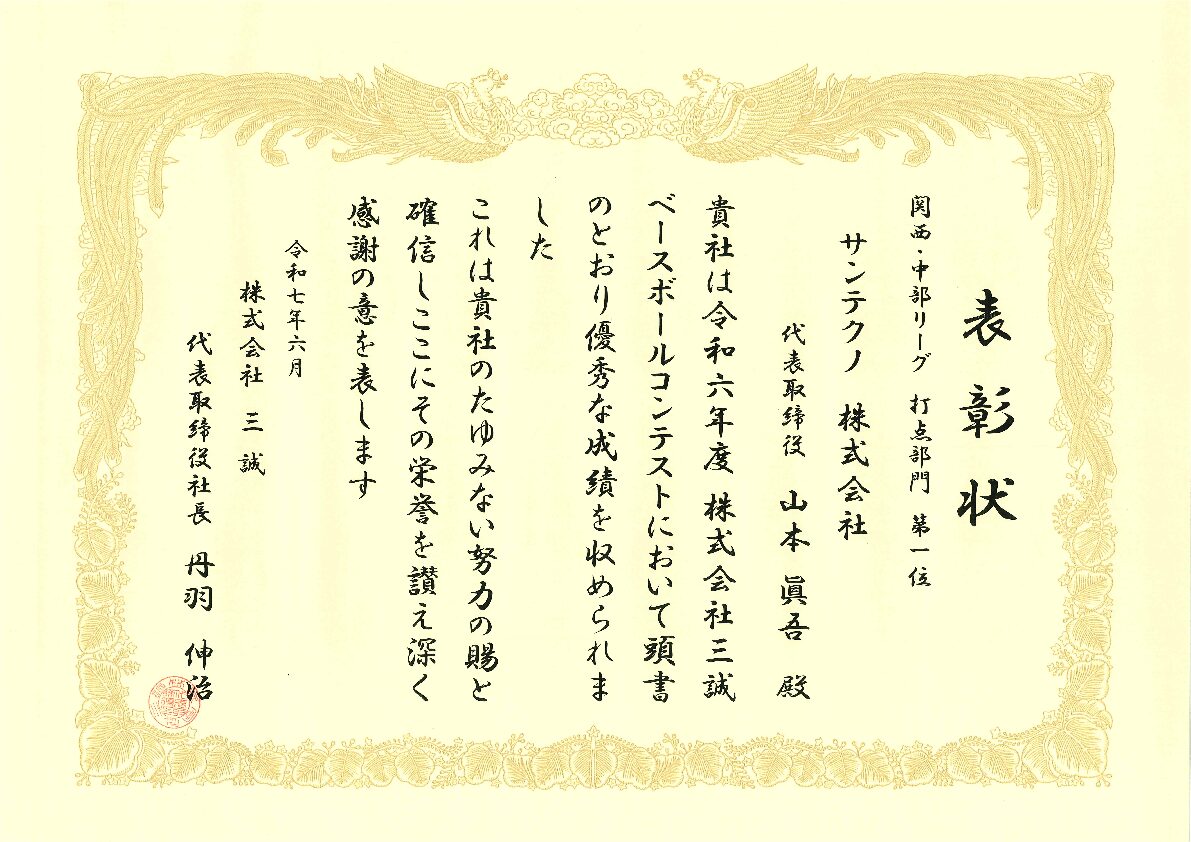 表彰状
関西・中部リーグ 打点部門 第一位
サンテクノ 株式会社
代表取締役 山本 眞吾 殿
貴社は令和六年度 株式会社三誠
ベースボールコンテストにおいて頭書
のとおり優秀な成績を収められま
した
これは貴社のたゆみない努力の賜と
確信しここにその栄誉を讃え深く
感謝の意を表します
令和七年六月
株式会社 三誠
代表取締役社長 丹羽 伸治